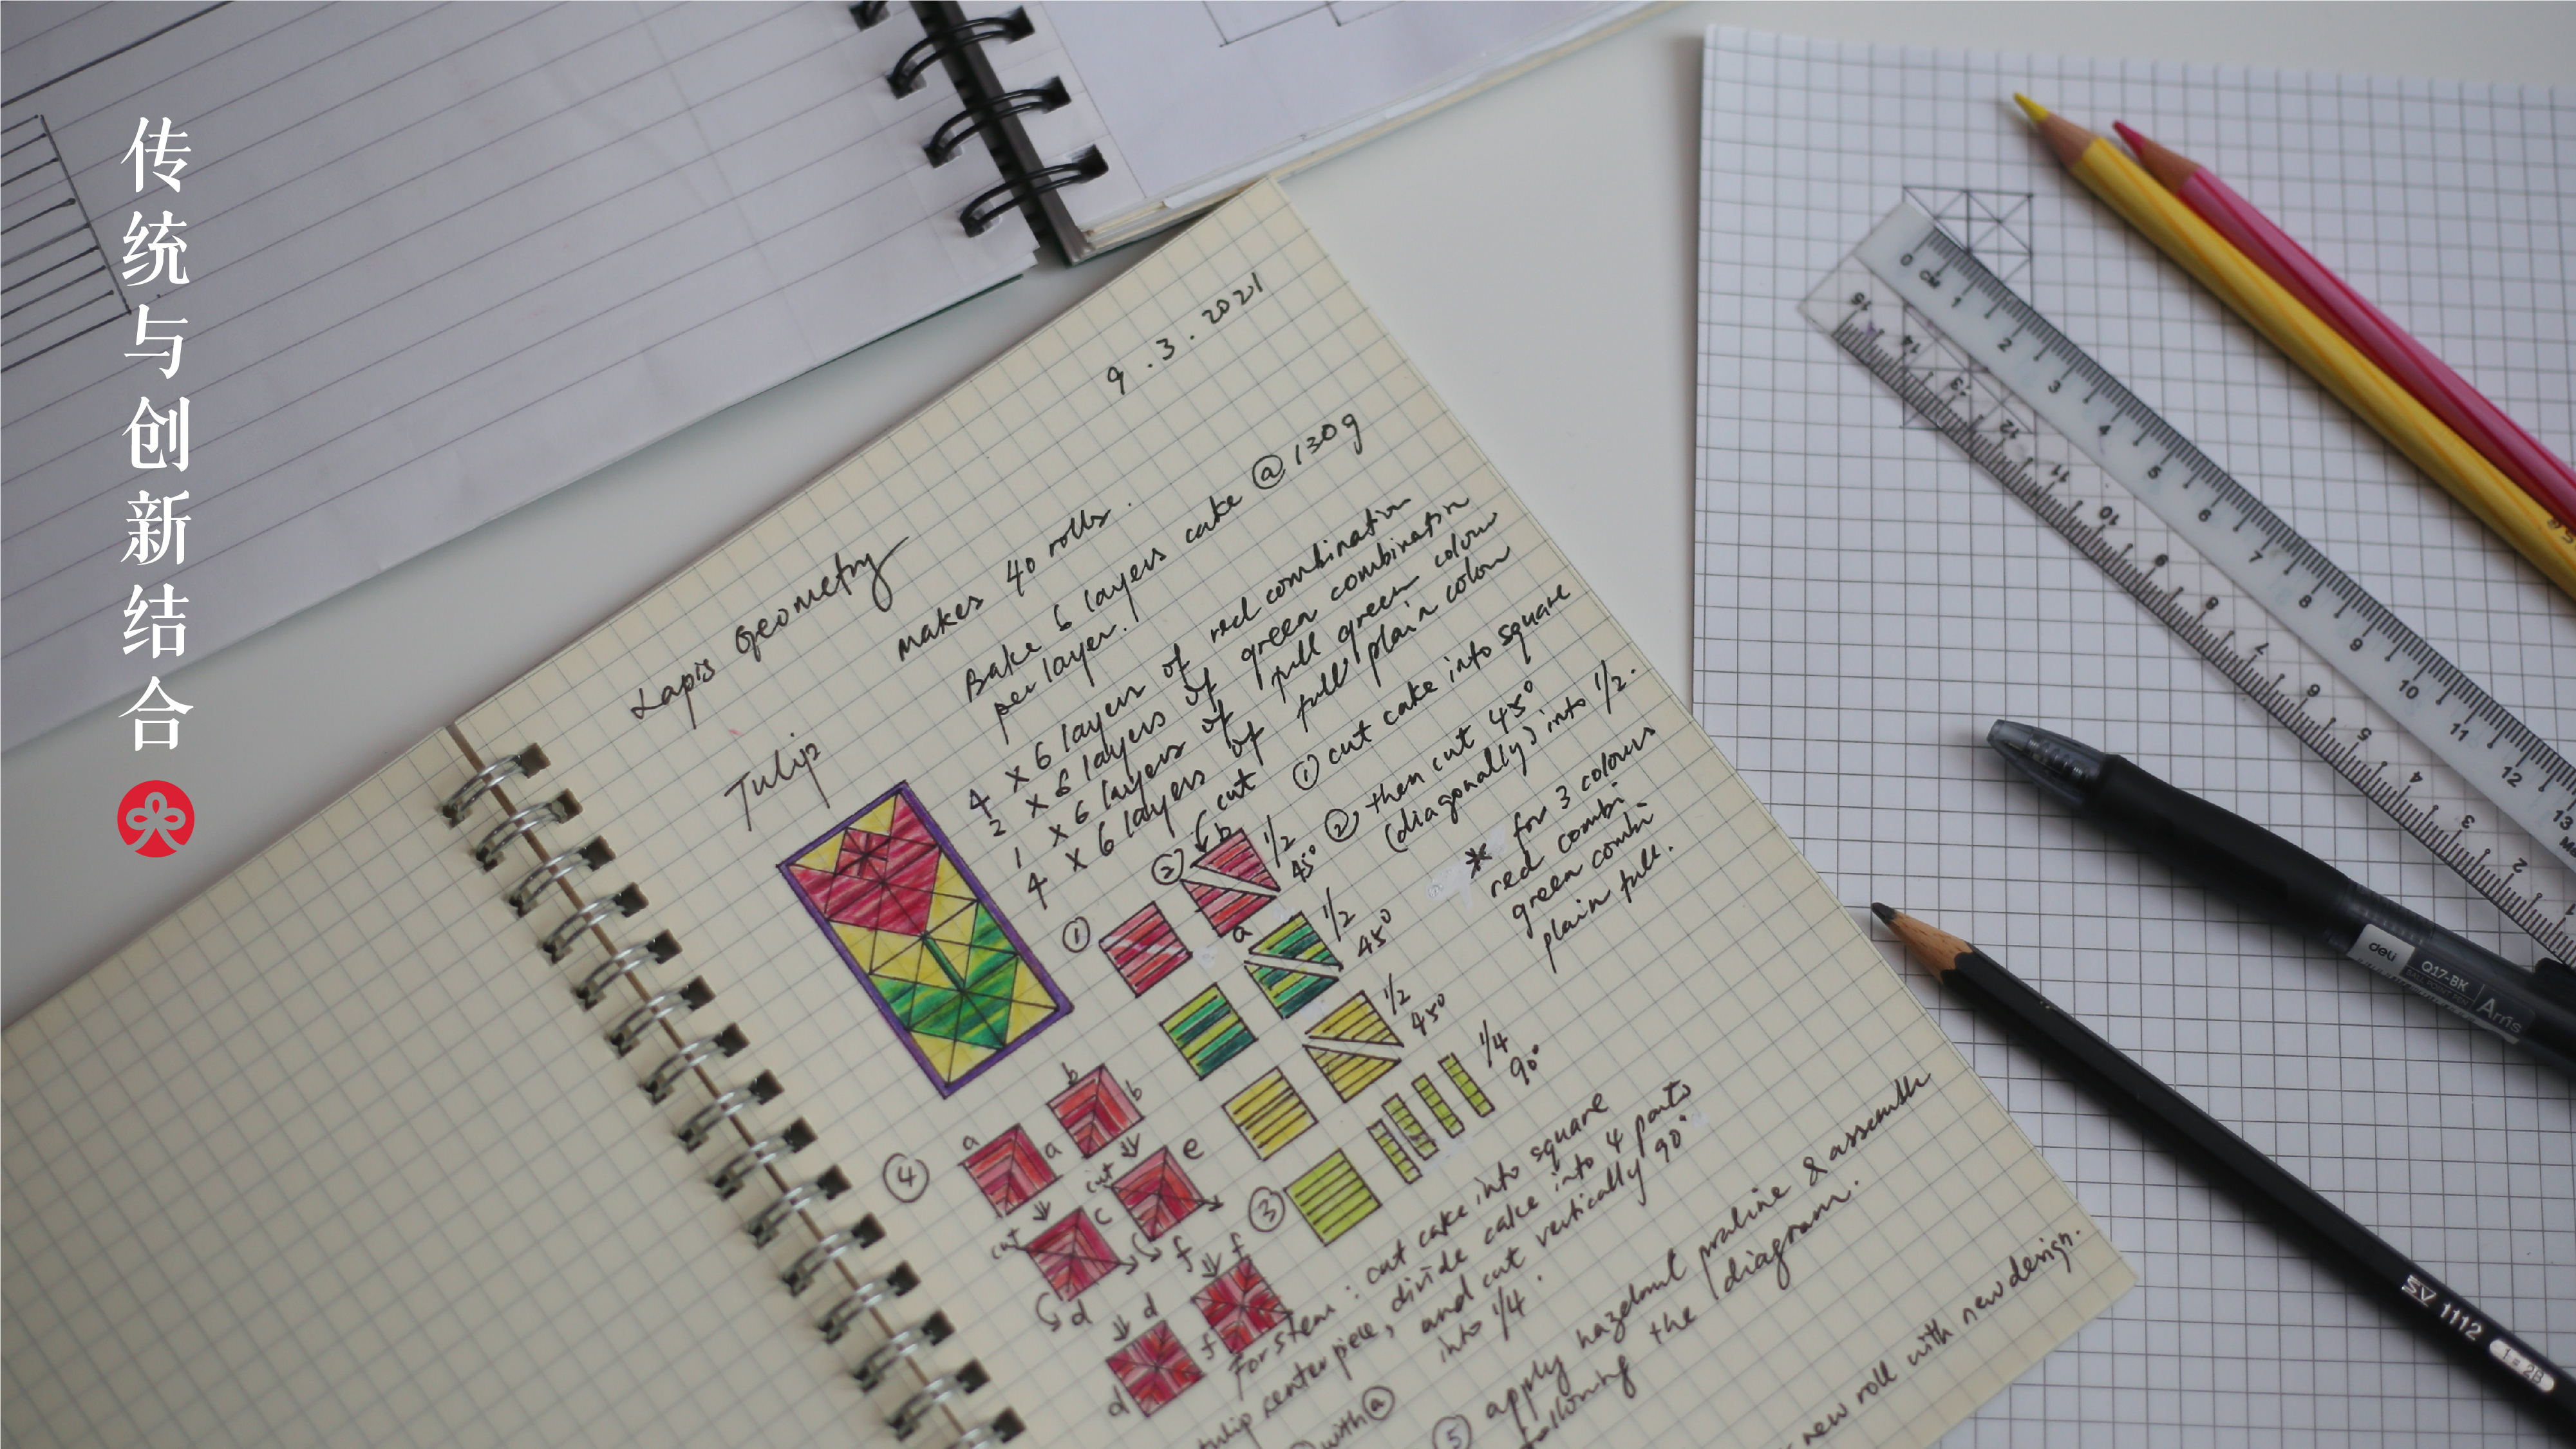 传统与创新结合
9.3.2021
Lapis Geometry
makes 40 rolls.
Tulip
Bake 6 layers cake @ 130g
per layer.
4 x 6 layers of red combination
2 x 6 layers of green combination
1 x 6 layers of full green colour
4 x 6 layers of full plain colour
cut ① cut cake into square
② then cut 45°
(diagonally) into 1/2.
* for 3 colours
red combi
green combi
plain full.
①
②
b
a
1/2
45°
1/2
45°
1/2
45°
1/4
90°
③
④
a
a
b
b
cut
cut
c
d
e
f
d
d
f
f
For stem: cut cake into square
center piece, divide cake into 4 parts
and cut vertically 90°
into 1/4.
with ⓐ
⑤ apply hazelnut praline & assemble
following the diagram.
new roll with new design.
0 CM 1 2 3 4 5 6 7 8 9 10 11 12 13
15 14 13 12 11 10 9 8 7 6 5 4 3 2 1
deli Q17-BK Arris
1112 1=2B